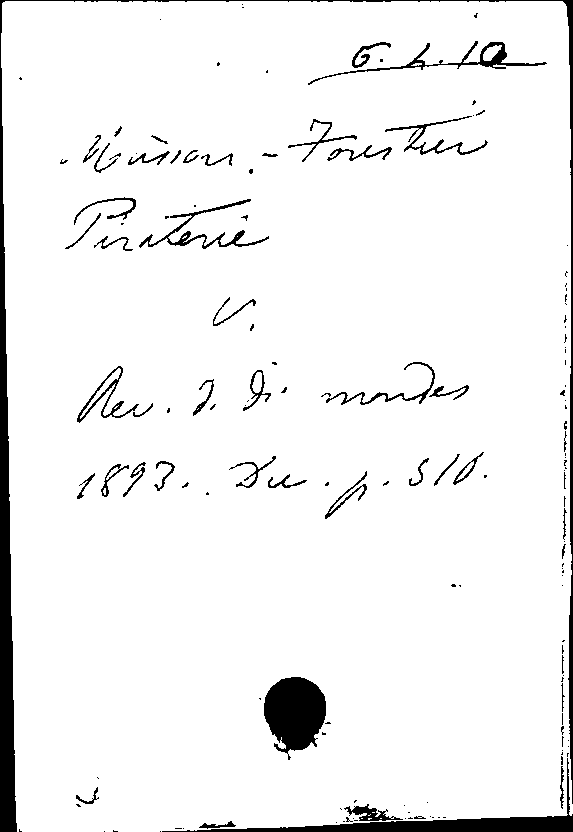 G. L. 10
Musson. - Forestier
Piraterie
v.
Rev. d. D. mondes
1893. Dec. p. 510.